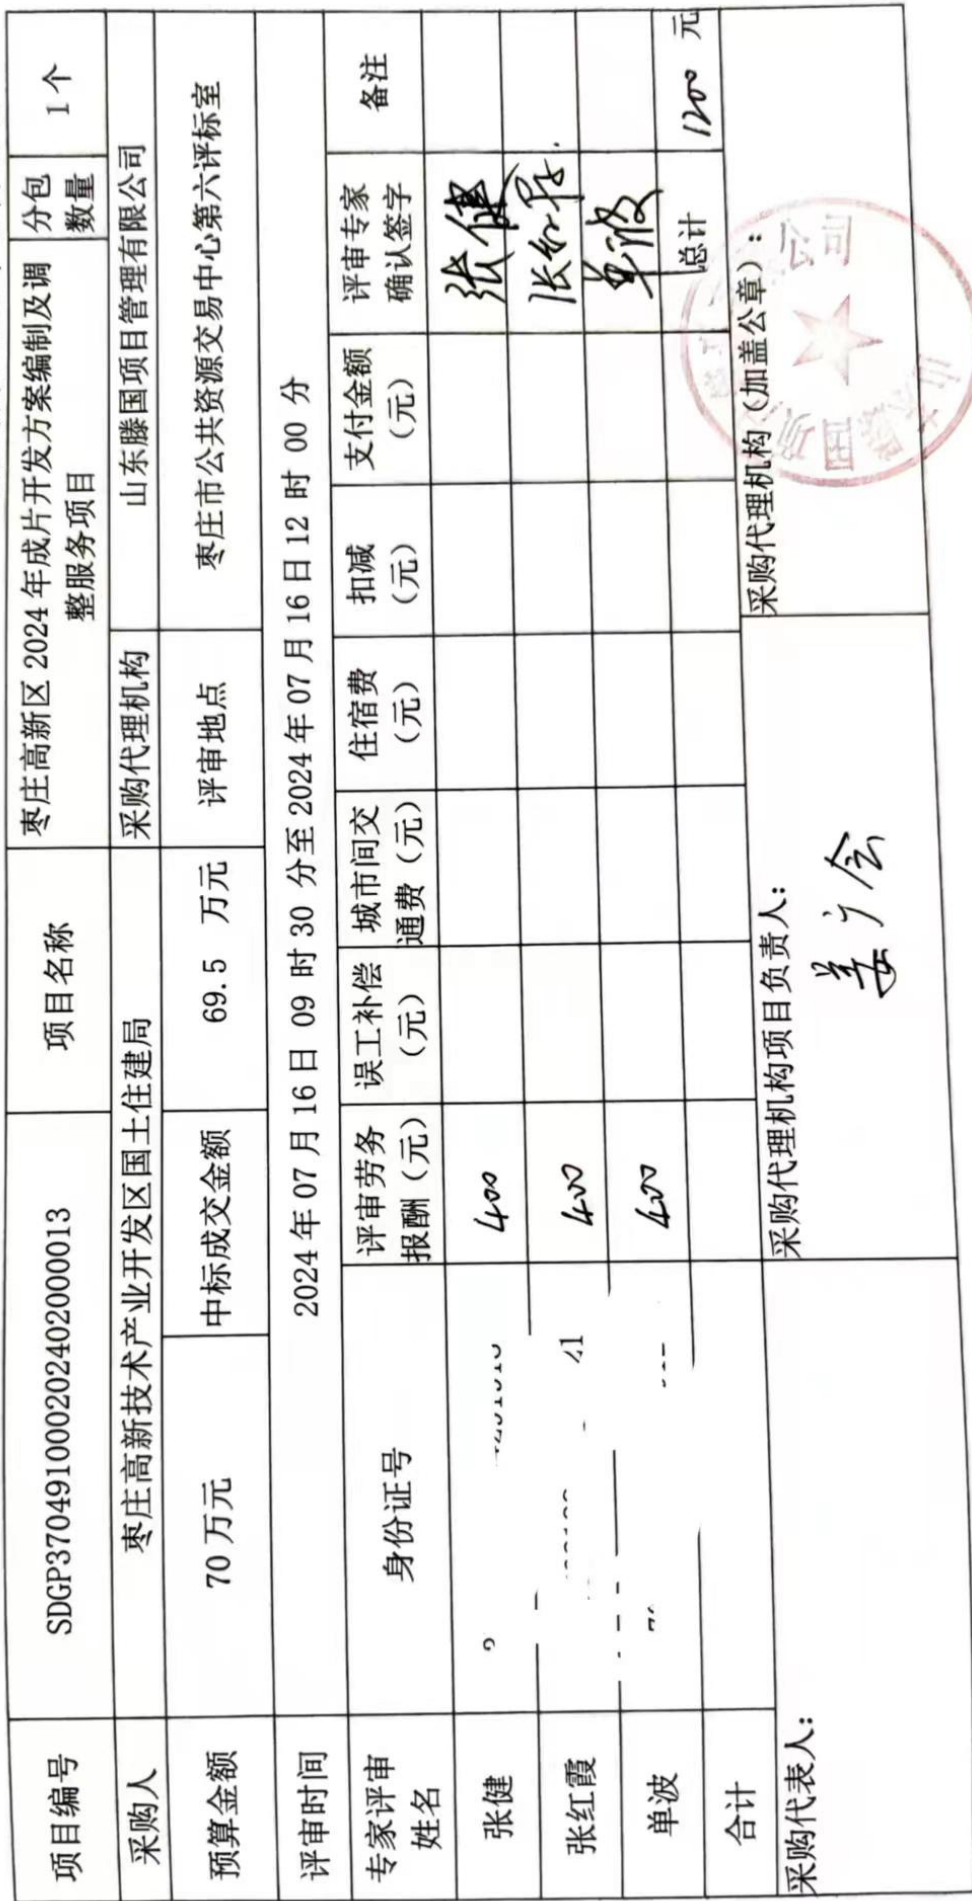 项目编号 SDGP370491000202402000013 项目名称 枣庄高新区 2024 年成片开发方案编制及调 分包 1 个
整服务项目 数量
采购人 枣庄高新技术产业开发区国土住建局 采购代理机构 山东滕国项目管理有限公司
预算金额 70 万元 中标成交金额 69.5 万元 评审地点 枣庄市公共资源交易中心第六评标室
评审时间 2024 年 07 月 16 日 09 时 30 分至 2024 年 07 月 16 日 12 时 00 分
专家评审 身份证号 评审劳务 误工补偿 城市间交 住宿费 扣减 支付金额 评审专家 备注
姓名 报酬（元） （元） 通费（元） （元） （元） （元） 确认签字
张健 400 张健
张红霞 41 400 张红霞
单波 400 单波
合计 总计 1200 元
采购代表人： 采购代理机构项目负责人： 采购代理机构（加盖公章）：